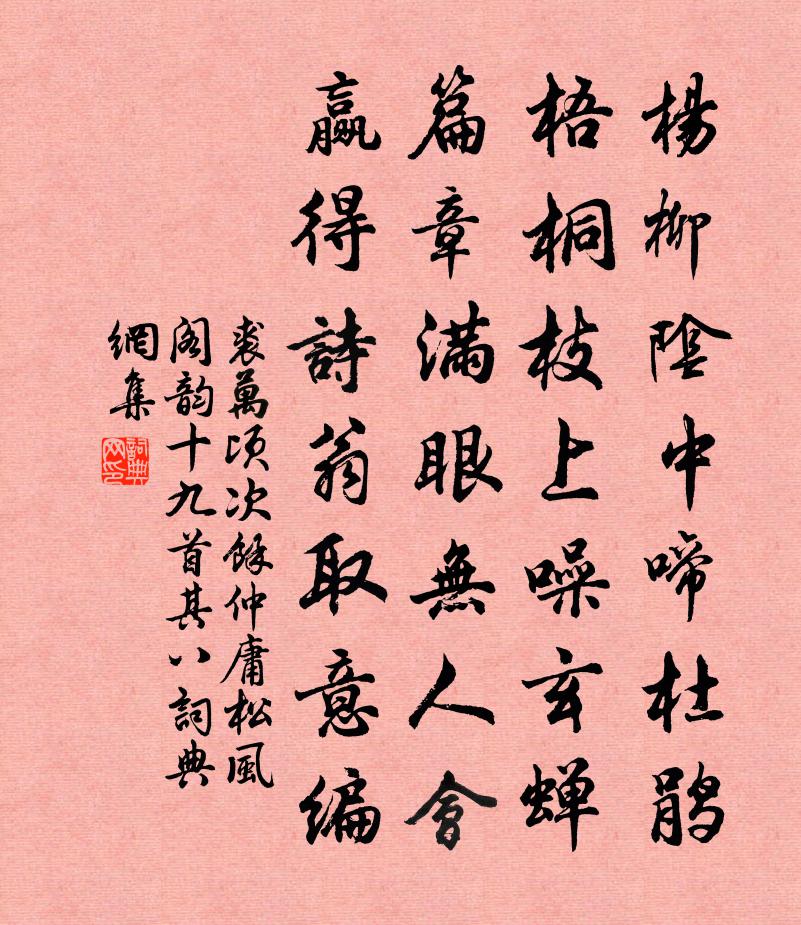 楊柳陰中啼杜鹃
梧桐枝上噪玄蝉
篇章满眼無人會
赢得詩翁取意編
裘萬頃次餘仲庸松風
阁韵十九首其八詞典
網集
詞典网印